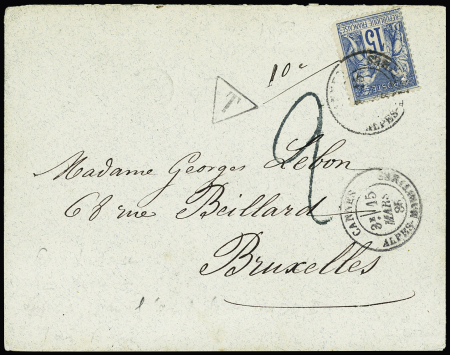 REPUBLIQUE FRANCAISE
15
POSTES
10c
T
ALPES-
2
Madame Georges Lebon
68 rue Beillard
Bruxelles
CANNES
3E
15
MARS
86
ALPES-MARITIMES